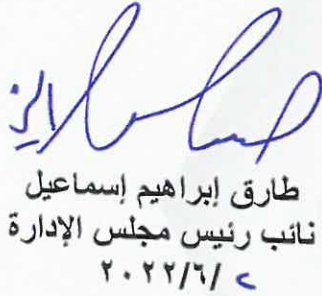 طارق إبراهيم إسماعيل
نائب رئيس مجلس الإدارة
٢٠٢٢/٦/ ٢